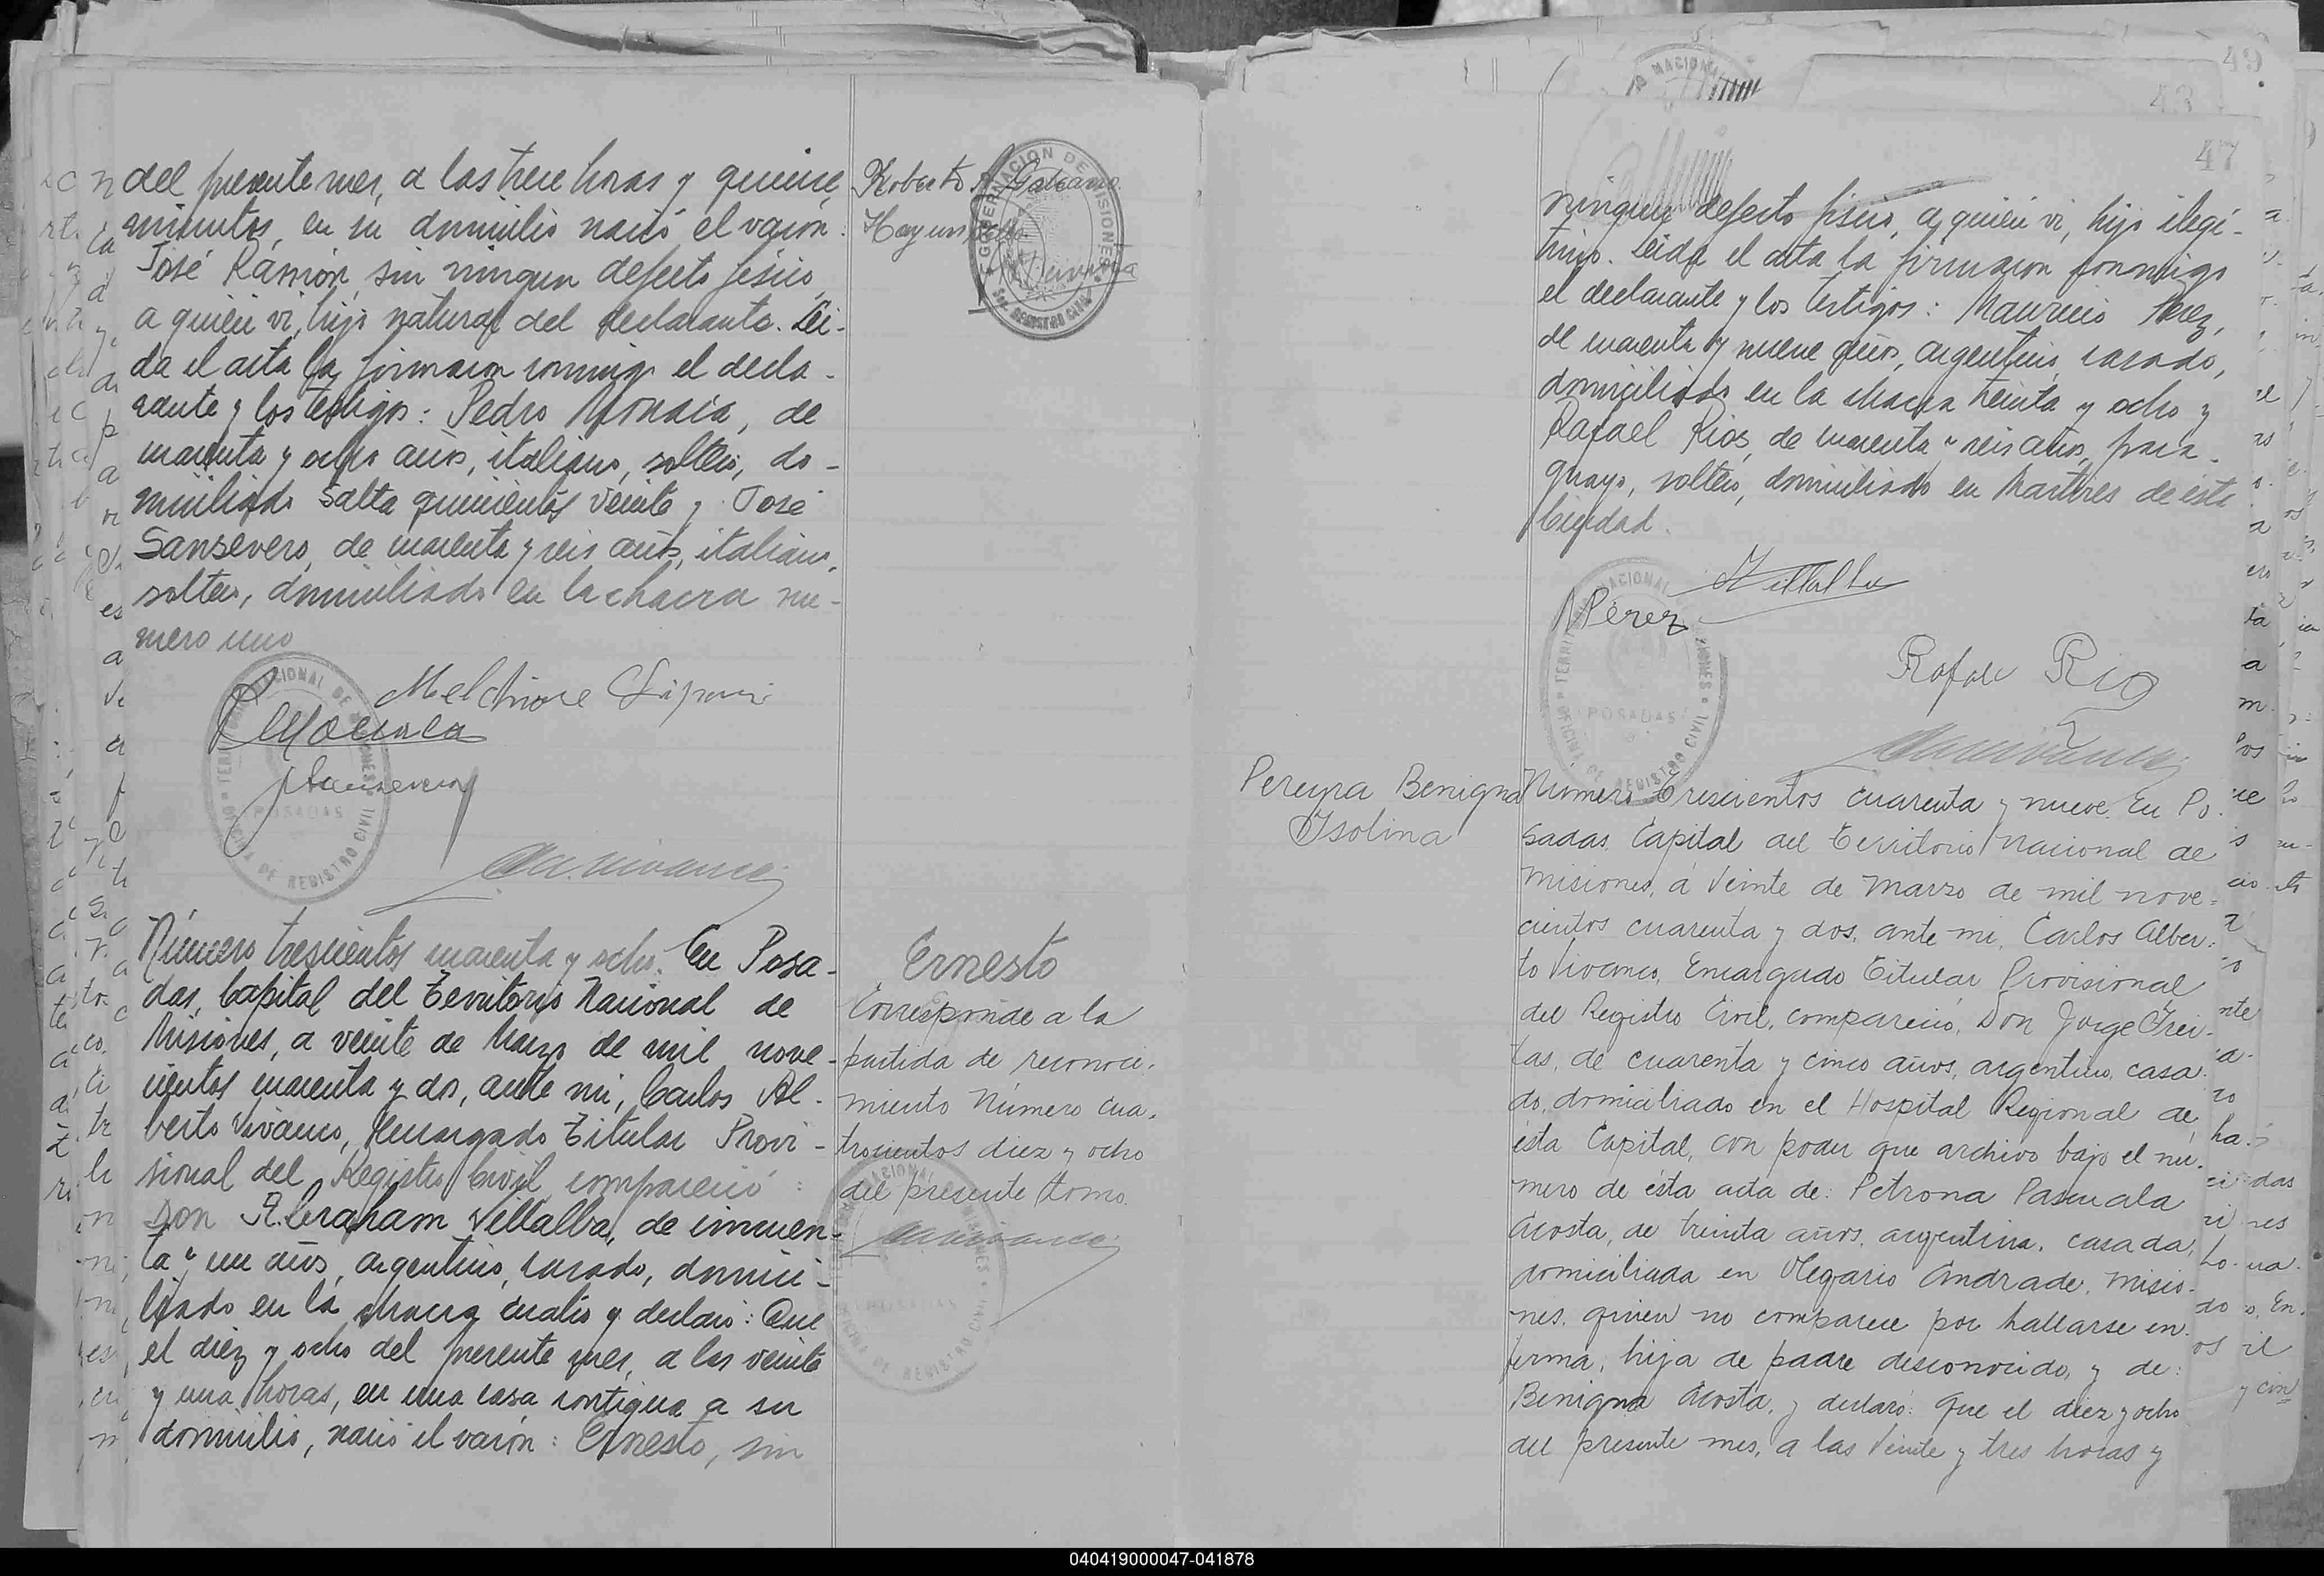 del presente mes, a las trece horas y quince
minutos, en su domicilio nació el varon:
José Ramón, sin ningun defecto físico,
a quien vi, hijo natural del declarante. Lei-
da el acta la firmaron conmigo el decla-
rante y los testigos: Pedro , de
cuarenta y ocho años, italiano, soltero, do-
miciliado Salta quinientos veinte y José
Sansevero, de cuarenta y seis años, italiano,
soltero, domiciliado en la chacra nu-
mero uno
Melchiore
Sansevero
Roberto A. Galeano
Hay un
GOBERNACION DE MISIONES
REGISTRO CIVIL
TERRITORIO NACIONAL DE MISIONES
POSADAS
OFICINA DE REGISTRO CIVIL
Número trescientos cuarenta y ocho. En Posa-
das, Capital del Territorio Nacional de
Misiones, a veinte de Marzo de mil nove-
cientos cuarenta y dos, ante mi, Carlos Al-
berto Vivanco, Encargado Titular Provi-
sional del Registro Civil, compareció:
Don Abraham Villalba, de cincuen-
ta y un años, argentino, casado, domici-
liado en la chacra cuatro y declaró: Que
el diez y ocho del presente mes, a las veinte
y una horas, en una casa contigua a su
domicilio, nació el varón: Ernesto, sin
Ernesto
Corresponde a la
partida de reconoci-
miento Número cua-
trocientos diez y ocho
del presente tomo.
49
43
47
ningun defecto físico, a quien vi, hijo ilegi-
timo. Leida el acta la firmaron conmigo
el declarante y los testigos: Mauricio Perez,
de cuarenta y nueve años, argentino, casado,
domiciliado en la chacra treinta y ocho y
Rafael Rios, de cuarenta y seis años, para-
guayo, soltero, domiciliado en Martires de esta
Ciudad.
Villalba
MPérez
Rafael Rios
TERRITORIO NACIONAL DE MISIONES
POSADAS
OFICINA DE REGISTRO CIVIL
Pereyra Benigna
Isolina
Número Trescientos cuarenta y nueve. En Po-
sadas, Capital del Territorio Nacional de
Misiones, á Veinte de Marzo de mil nove-
cientos cuarenta y dos, ante mi, Carlos Alber-
to Vivanco, Encargado Titular Provisional
del Registro Civil, compareció, Don Jorge Frei-
tas, de cuarenta y cinco años, argentino, casa-
do, domiciliado en el Hospital Regional de
ésta Capital, con poder que archivo bajo el nú-
mero de ésta acta de: Petrona Pascuala
Acosta, de treinta años, argentina, casada,
domiciliada en Olegario Andrade, Misio-
nes, quien no comparece por hallarse en-
ferma, hija de padre desconocido, y de:
Benigna Acosta, y declaró: Que el diez y ocho
del presente mes, a las Veinte y tres horas y
040419000047-041878